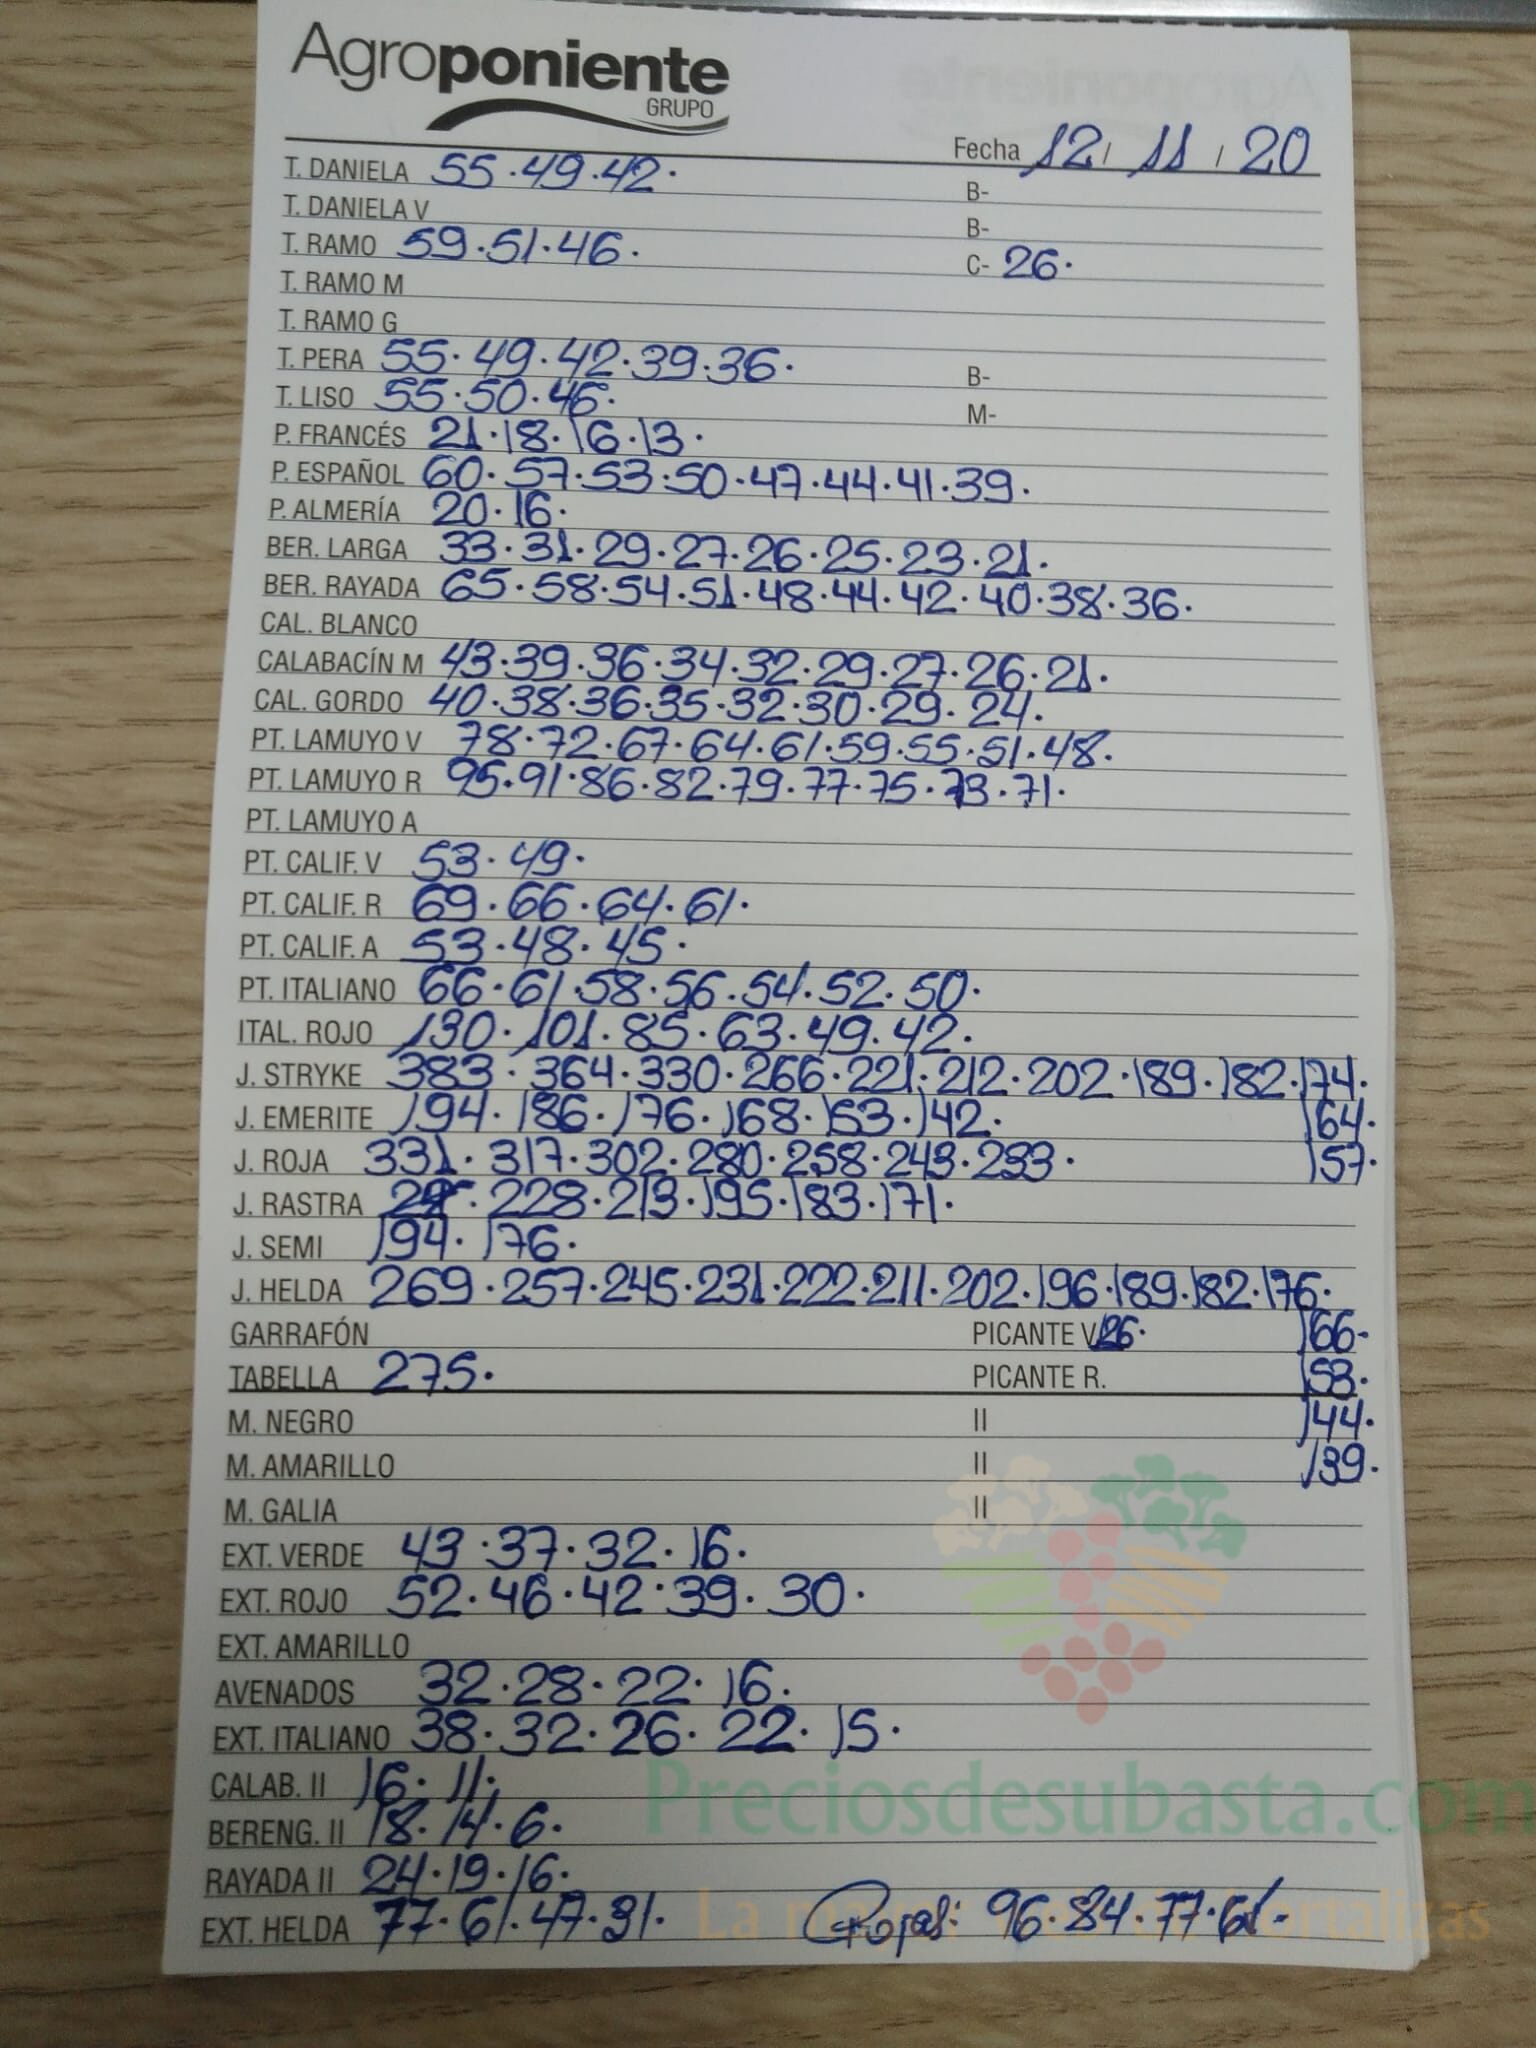 Agroponiente
GRUPO
Fecha 12 / 11 / 20
T. DANIELA 55.49.42. B-
T. DANIELA V B-
T. RAMO 59.51.46. C- 26.
T. RAMO M
T. RAMO G
T. PERA 55.49.42.39.36. B-
T. LISO 55.50.46. M-
P. FRANCÉS 21.18.16.13.
P. ESPAÑOL 60.57.53.50.47.44.41.39.
P. ALMERÍA 20.16.
BER. LARGA 33.31.29.27.26.25.23.21.
BER. RAYADA 65.58.54.51.48.44.42.40.38.36.
CAL. BLANCO
CALABACÍN M 43.39.36.34.32.29.27.26.21.
CAL. GORDO 40.38.36.35.32.30.29.24.
PT. LAMUYO V 78.72.67.64.61.59.55.51.48.
PT. LAMUYO R 95.91.86.82.79.77.75.73.71.
PT. LAMUYO A
PT. CALIF. V 53.49.
PT. CALIF. R 69.66.64.61.
PT. CALIF. A 53.48.45.
PT. ITALIANO 66.61.58.56.54.52.50.
ITAL. ROJO 130.101.85.63.49.42.
J. STRYKE 383.364.330.266.221.212.202.189.182.174.
J. EMERITE 194.186.176.168.153.142. 164.
J. ROJA 331.317.302.280.258.243.233. 157.
J. RASTRA 228.213.195.183.171.
J. SEMI 194.176.
J. HELDA 269.257.245.231.222.211.202.196.189.182.176.
GARRAFÓN PICANTE V 166.
TABELLA 275. PICANTE R. 153.
M. NEGRO II 144.
M. AMARILLO II 139.
M. GALIA II
EXT. VERDE 43.37.32.16.
EXT. ROJO 52.46.42.39.30.
EXT. AMARILLO
AVENADOS 32.28.22.16.
EXT. ITALIANO 38.32.26.22.15.
CALAB. II 16.11.
Preciosdesubasta.com
BERENG. II 18.14.6.
RAYADA II 24.19.16.
EXT. HELDA 77.61.47.31. Rojas: 96.84.77.61.